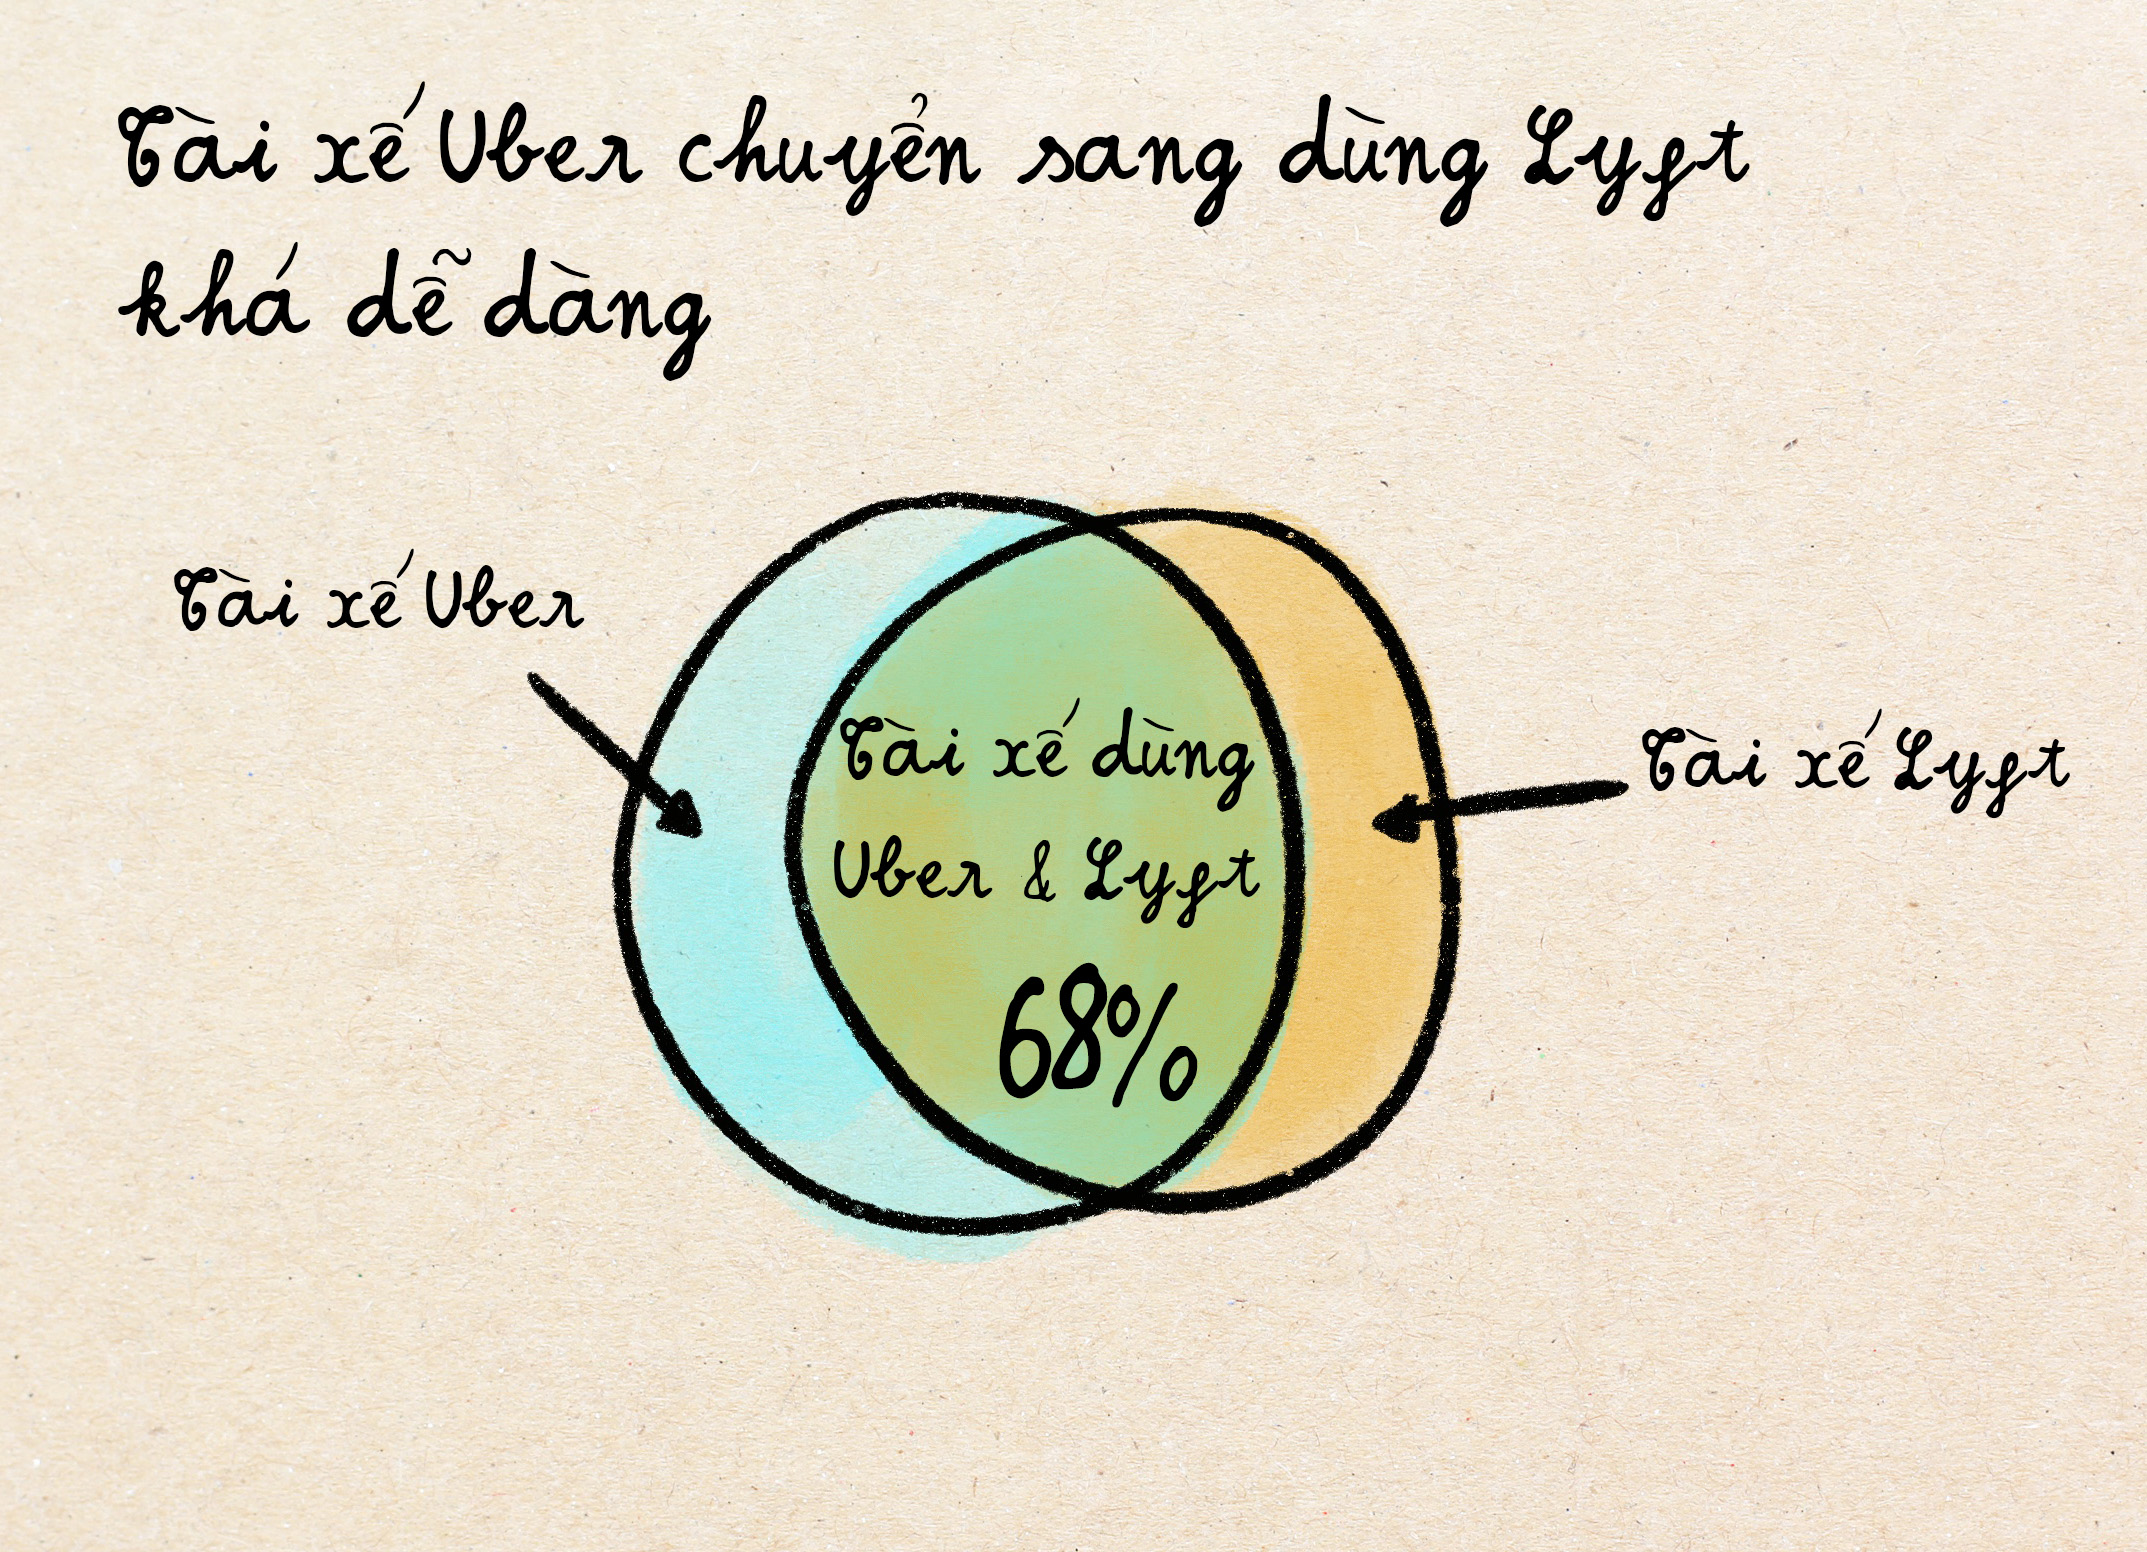 Tài xế Uber chuyển sang dùng Lyft
khá dễ dàng
Tài xế Uber
Tài xế dùng
Uber & Lyft
68%
Tài xế Lyft